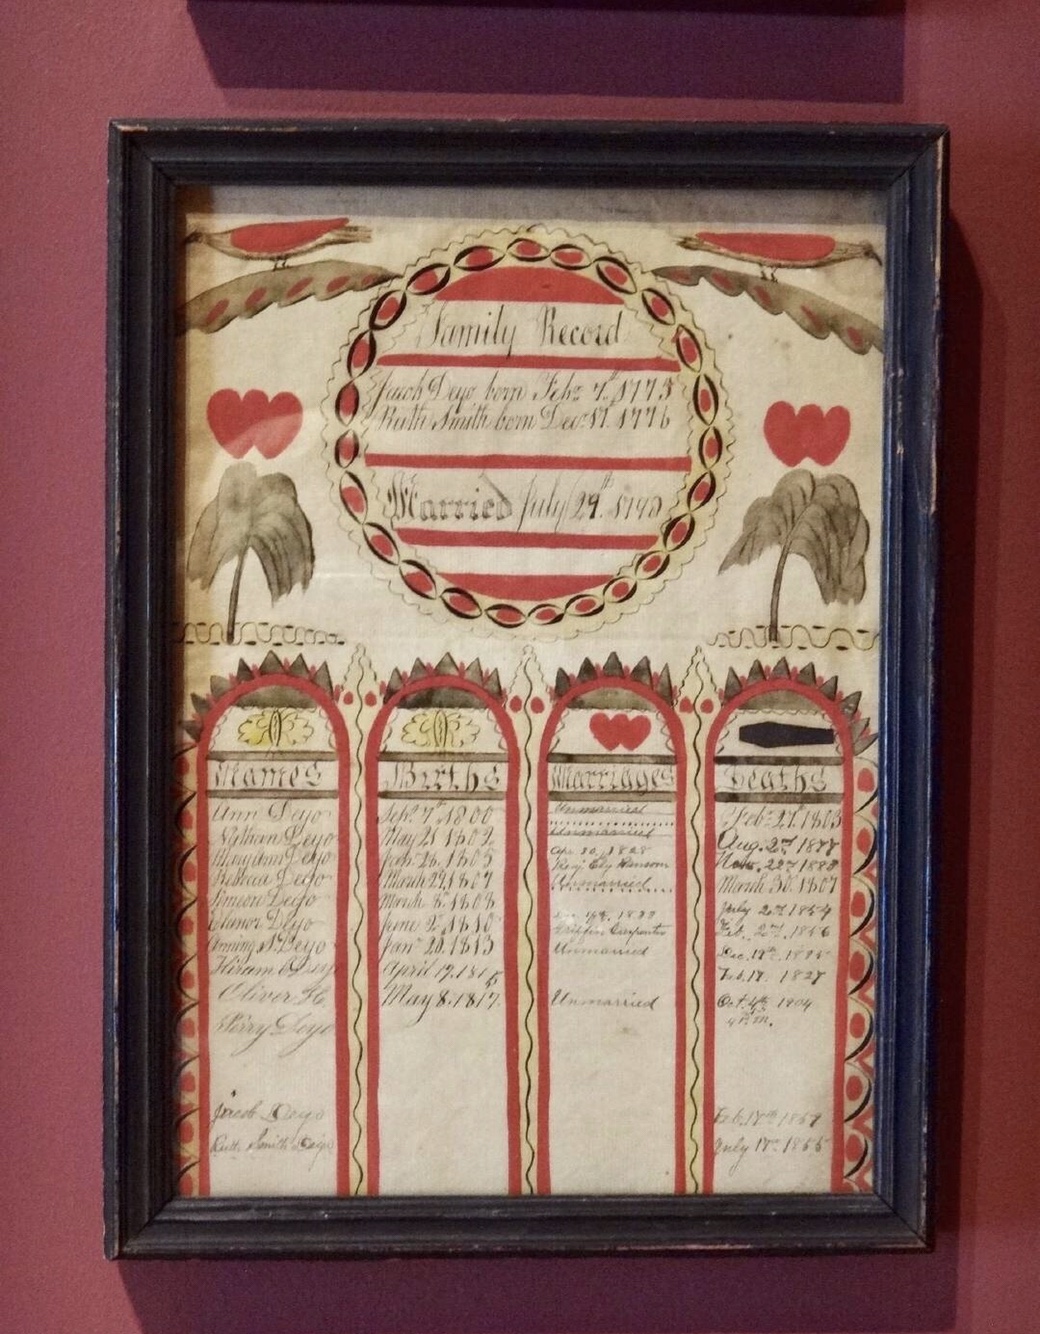 Family Record
Jacob Deyo born Feb: 7th 1775
Ruth Smith born Dec: 17. 1776
Married July 29th. 1798
Names
Ann Deyo
Nathan Deyo
Mary Ann Deyo
Rebecca Deyo
Simeon Deyo
Elanor Deyo
Deyo
Hiram Deyo
Oliver H
Perry Deyo
Jacob Deyo
Ruth Smith Deyo
Births
Sept. 7th 1800
May 21. 1802.
Feb: 26. 1805
March 29, 1807
March 8. 1808
June 2. 1810
Jan: 20. 1813
April 19. 1815
May 8. 1817.
Marriages
Unmarried
Unmarried
Apr. 30, 1828
Benj. Ely Ransom
Unmarried
1833
Griffin Carpenter
Unmarried
Unmarried
Deaths
Feb: 21. 1803
Aug. 2nd 1877
Nov. 22nd 1888
March 30. 1807
July 2nd 1854
Feb. 2nd 1856
Dec. 18th. 1895
Feb. 17. 1827
Oct. 4th 1904
4 P.M.
Feb. 17th 1857
July 17th 1855